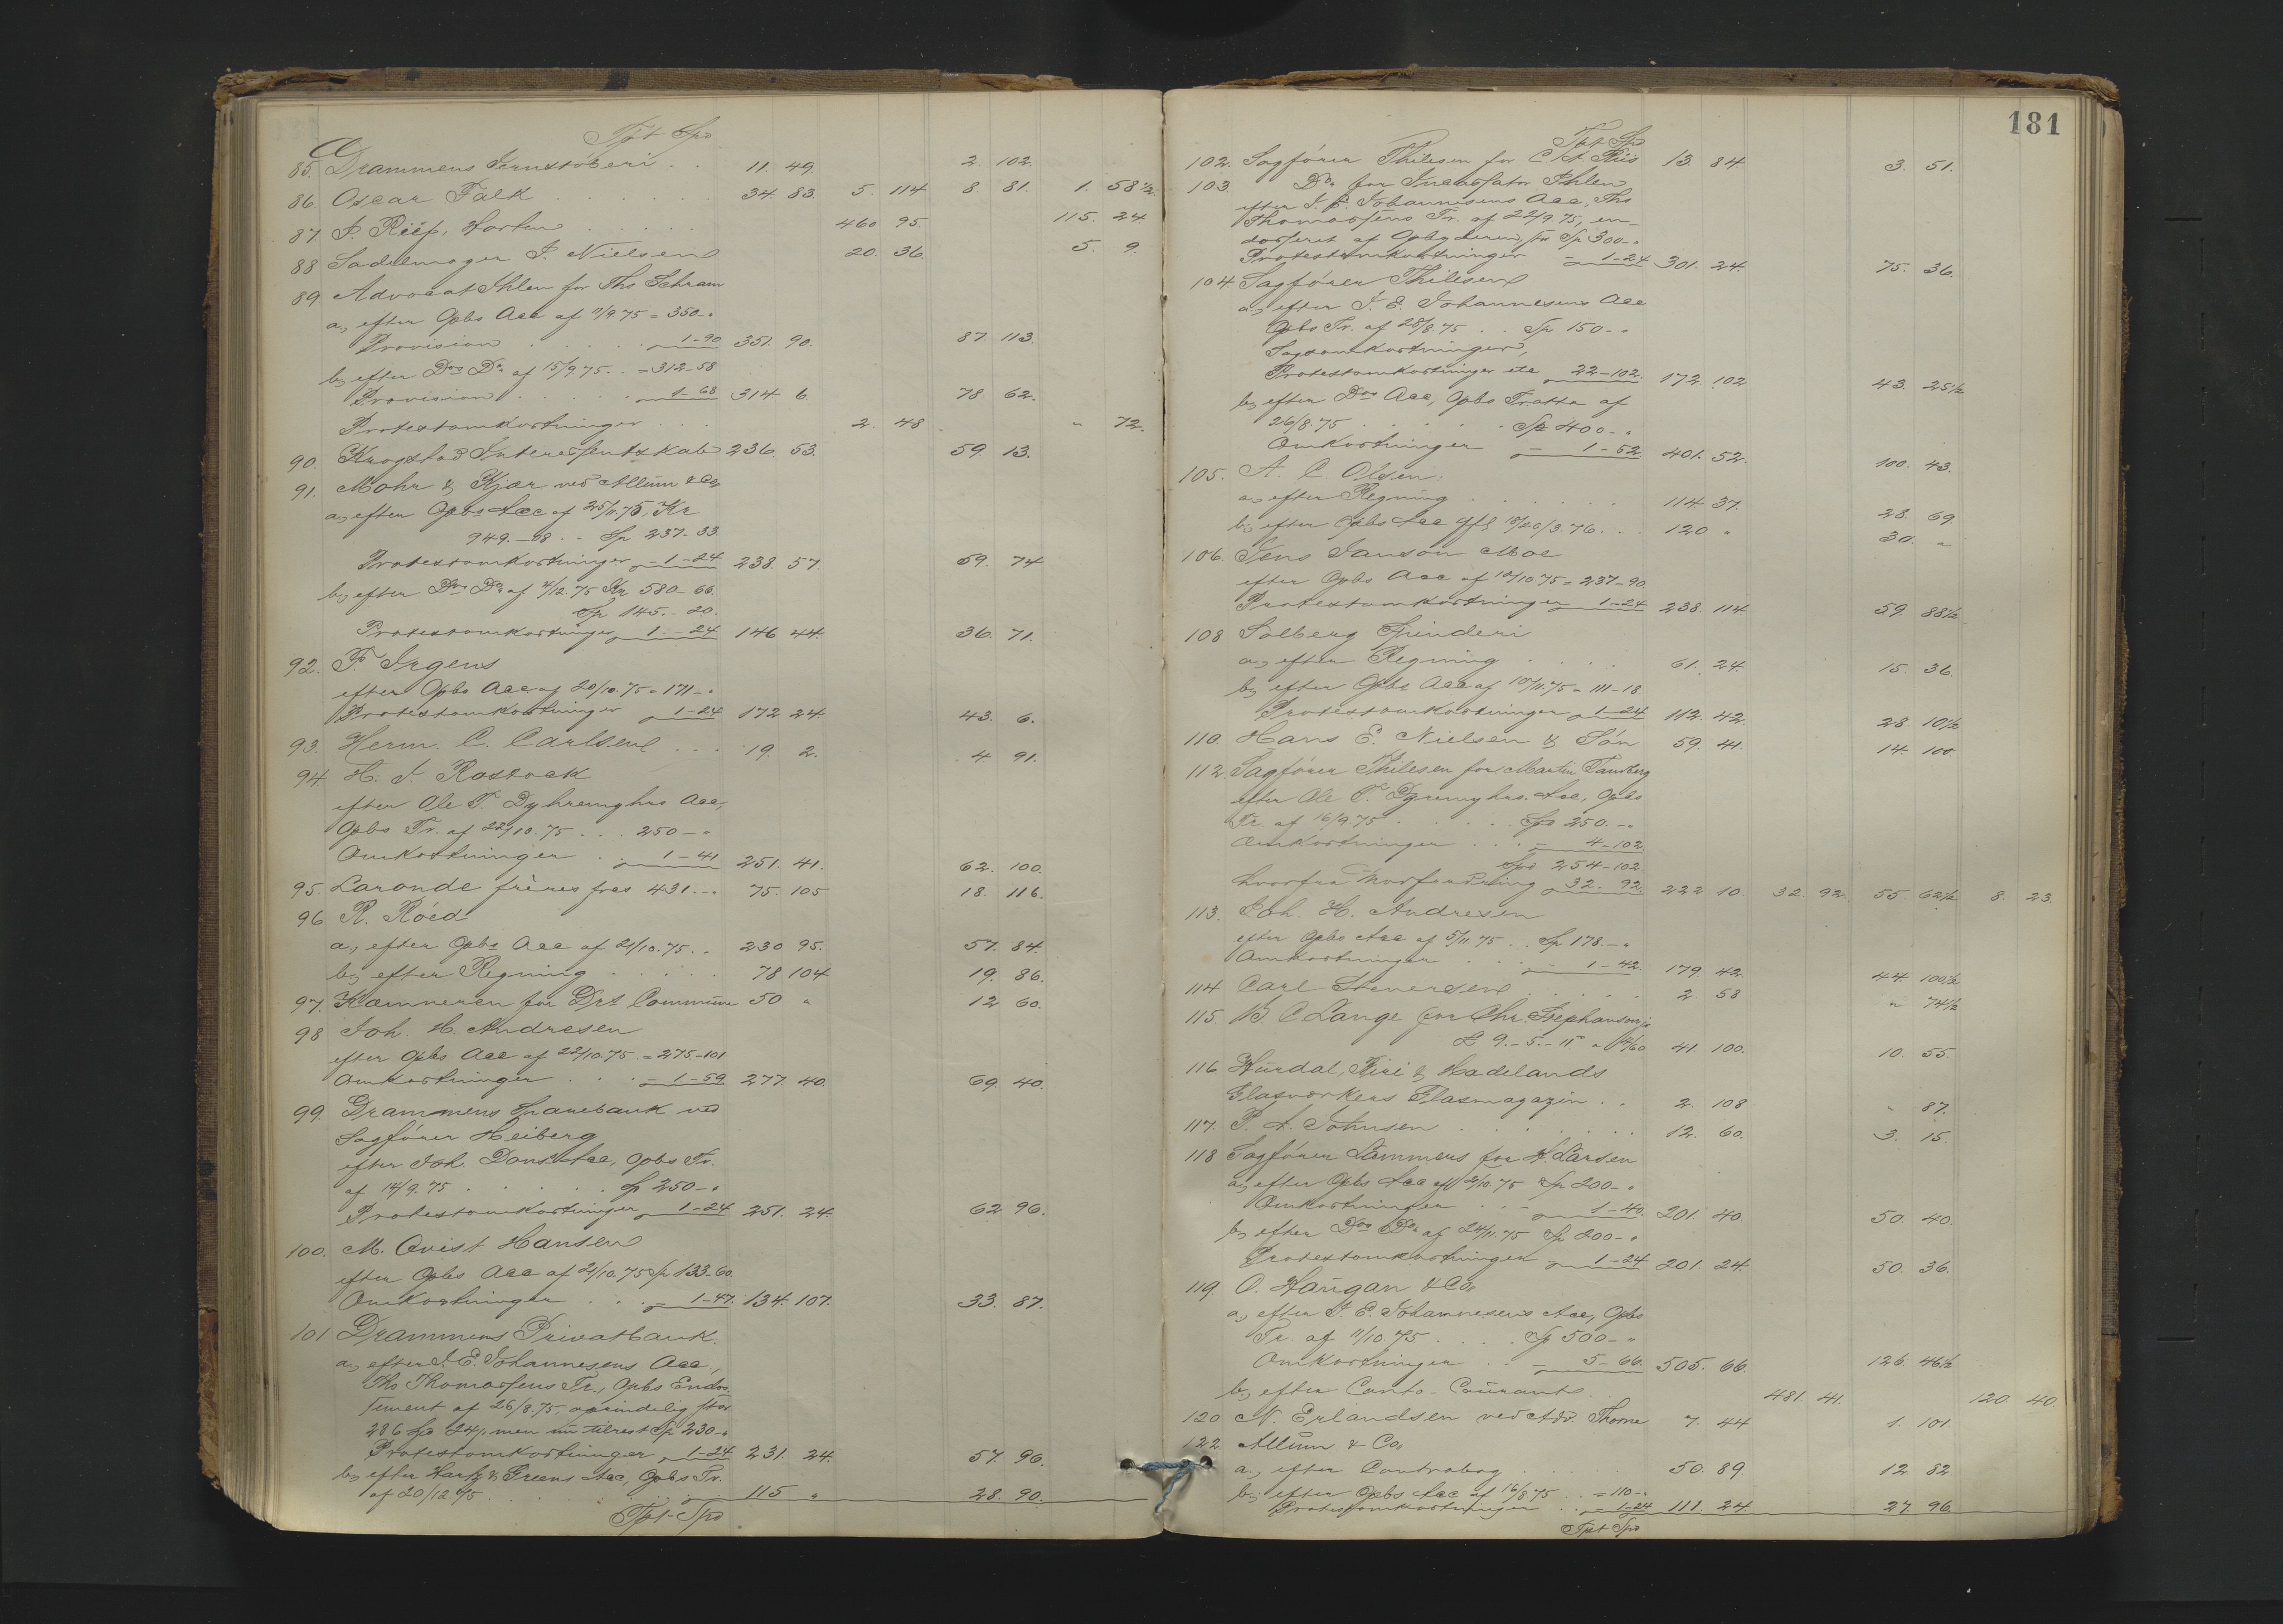 Tpt Spd
85. Drammens Jernstøberi . . 11. 49. 2. 102.
86. Oscar Falk . . . . . . 34. 83. 5. 114 8. 81. 1. 58½
87. P. Riis, Horten . . . . . 460 95. 115. 24
88 Sadelmager P. Nielsen 20. 36. 5. 9.
89 Advocat Ihlen for Ths Schram
a, efter Opbs Acc af 11/9.75 = 350-"
Provision . . . . . 1-90 351. 90. 87. 113.
b, efter Dos Do af 15/9.75 . . = 312-58
Provision . . . . . 1-68 314 6. 78. 62.
Protestomkostninger . . . 2. 48 " 72.
90. Krogstad Interessentskab 236. 53. 59. 13.
91. Mohr & Kjær ved Allum & Co
a, efter Opbs Acc af 25/11.75, Kr
949.-08 . . Sp 237-33.
Protestomkostninger - 1-24 238. 57. 59. 74
b, efter Dos Do af 4/12.75 Kr 580-66.
Sp 145.-20.
Protestomkostninger 1.-24 146 44. 36. 71.
92. F. Irgens
efter Opbs Acc af 20/10.75 = 171-"
Protestomkostninger 1-24 172 24. 43. 6.
93. Herm. C. Carlsen . . . 19. 2. 4 91.
94. H. J. Rostock
efter Ole T. Dyhrenghrs Acc,
Opbs Tr. af 22/10.75 . . . 250-"
Omkostninger . . 1-41 251. 41. 62. 100.
95. Laronde frères frcs 431.-" 75. 105 18. 116.
96 R. Röed
a, efter Opbs Acc af 21/10.75 . . 230 95. 57. 84.
b, efter Regning . . . . . 78 104 19. 86.
97. Kæmneren for Drs Commune 50 " 12 60.
98 Joh. H. Andresen
efter Opbs Acc af 22/10.75 = 275-101
Omkostninger . . . - 1-59 277. 40. 69. 40.
99. Drammens Sparebank ved
Sagfører Heiberg
efter Joh. Dans Acc, Opbs Tr.
af 14/9.75 . . . . . Sp 250-"
Protestomkostninger 1-24 251. 24. 62 96.
100. M. Qvist Hansen
efter Opbs Acc af 21/10.75 Sp 133-60.
Omkostninger . . . - 1-47. 134. 107. 33. 87.
101 Drammens Privatbank.
a, efter J. E. Johannesens Acc,
Ths Thomassens Tr., Opbs Endos-
sement af 26/8.75, oprindelig stor
286 Spd 24, men nu tilrest Sp 230-"
Protestomkostninger 1-24 231. 24. 57. 96.
b, efter Hartz & Greens Acc, Opbs Tr.
af 20/12.75 . . . . . . 115 " 28. 90.
Tpt Spd
181
Tpt Spd
102. Sagfører Thilesen for C. A. Riis 13. 84 3. 51.
103. Do for Incassator Ihlen
efter J. E. Johannesens Acc, Ths
Thomassens Tr. af 22/9.75, en-
dosseret af Opbyderen, for Sp 300-"
Protestomkostninger - 1-24 301. 24. 75. 36.
104. Sagfører Thilesen
a, efter J. E. Johannesens Acc
Opbs Tr. af 28/8.75 . . Sp 150-"
Sagsomkostninger,
Protestomkostninger etc 22-102. 172. 102 43. 25½
b, efter Dos Acc, Opbs Tratta af
26/8.75 . . . . . Sp 400-"
Omkostninger - 1-52 401. 52. 100. 43.
105. A. C. Olsen.
a, efter Regning . . . . . . 114 37. 28. 69.
b, efter Opbs Acc 18/20/3.76 . . . 120 " 30. "
106. Jens Janson Moe
efter Opbs Acc af 12/10.75 = 237-90
Protestomkostninger 1-24 238. 114. 59. 88½
108 Solberg Spinderi
a, efter Regning . . . . 61. 24. 15. 36.
b, efter Opbs Acc af 10/11.75 = 111-18
Protestomkostninger 1-24 112. 42. 28. 10½
110. Hans E. Nielsen & Søn 59. 41. 14. 100.
112. Sagfører Thilesen for Martin Tansberg
efter Ole T. Dyrenghrs. Acc, Opbs
Tr. af 16/9.75 . . . . . Spd 250.-"
Omkostninger . . . - 4-102
Spd 254-102
hvorfra Modfordring 32-92. 222 10. 32 92. 55 62½ 8. 23.
113. Joh. H. Andresen
efter Opbs Acc af 5/11.75 . . Sp 178.-"
Omkostninger . . . - 1-42. 179. 42 44. 100½
114 Carl Siversen . . . . . 2. 58 " 74½
115. B C Lange for Chr. Stephansen jr
£ 9.-5.-11 41. 100. 10. 55.
116 Hurdal, Biri & Hadelands
Glasværkers Glasmagazin . . 2. 108 " 87.
117. P. A. Johnsen . . . . . . . 12. 60. 3. 15.
118 Sagfører Lammers for A. Larsen
a, efter Opbs Acc af 2/10.75 Sp 200-"
Omkostninger . . - 1-40. 201. 40. 50. 40.
b, efter Dos Do af 24/11.75 Sp 200-"
Protestomkostninger 1-24 201. 24. 50. 36.
119 O. Haugan & Co.
a, efter J. E. Johannesens Acc, Opbs
Tr. af 11/10.75 . . . . Sp 500-"
Omkostninger . . - 5-66. 505. 66. 126. 46½
b, efter Conto-Courant . . 481. 41. 120. 40
120 N. Erlandsen ved Adv. Thorne 7. 44 1. 101.
122 Allum & Co.
a, efter Contrabog . . . . . 50. 89. 12. 82
b, efter Opbs Acc af 16/8.75 . . = 110-"
Protestomkostninger . . - 1-24 111. 24. 27. 96.
Tpt Spd